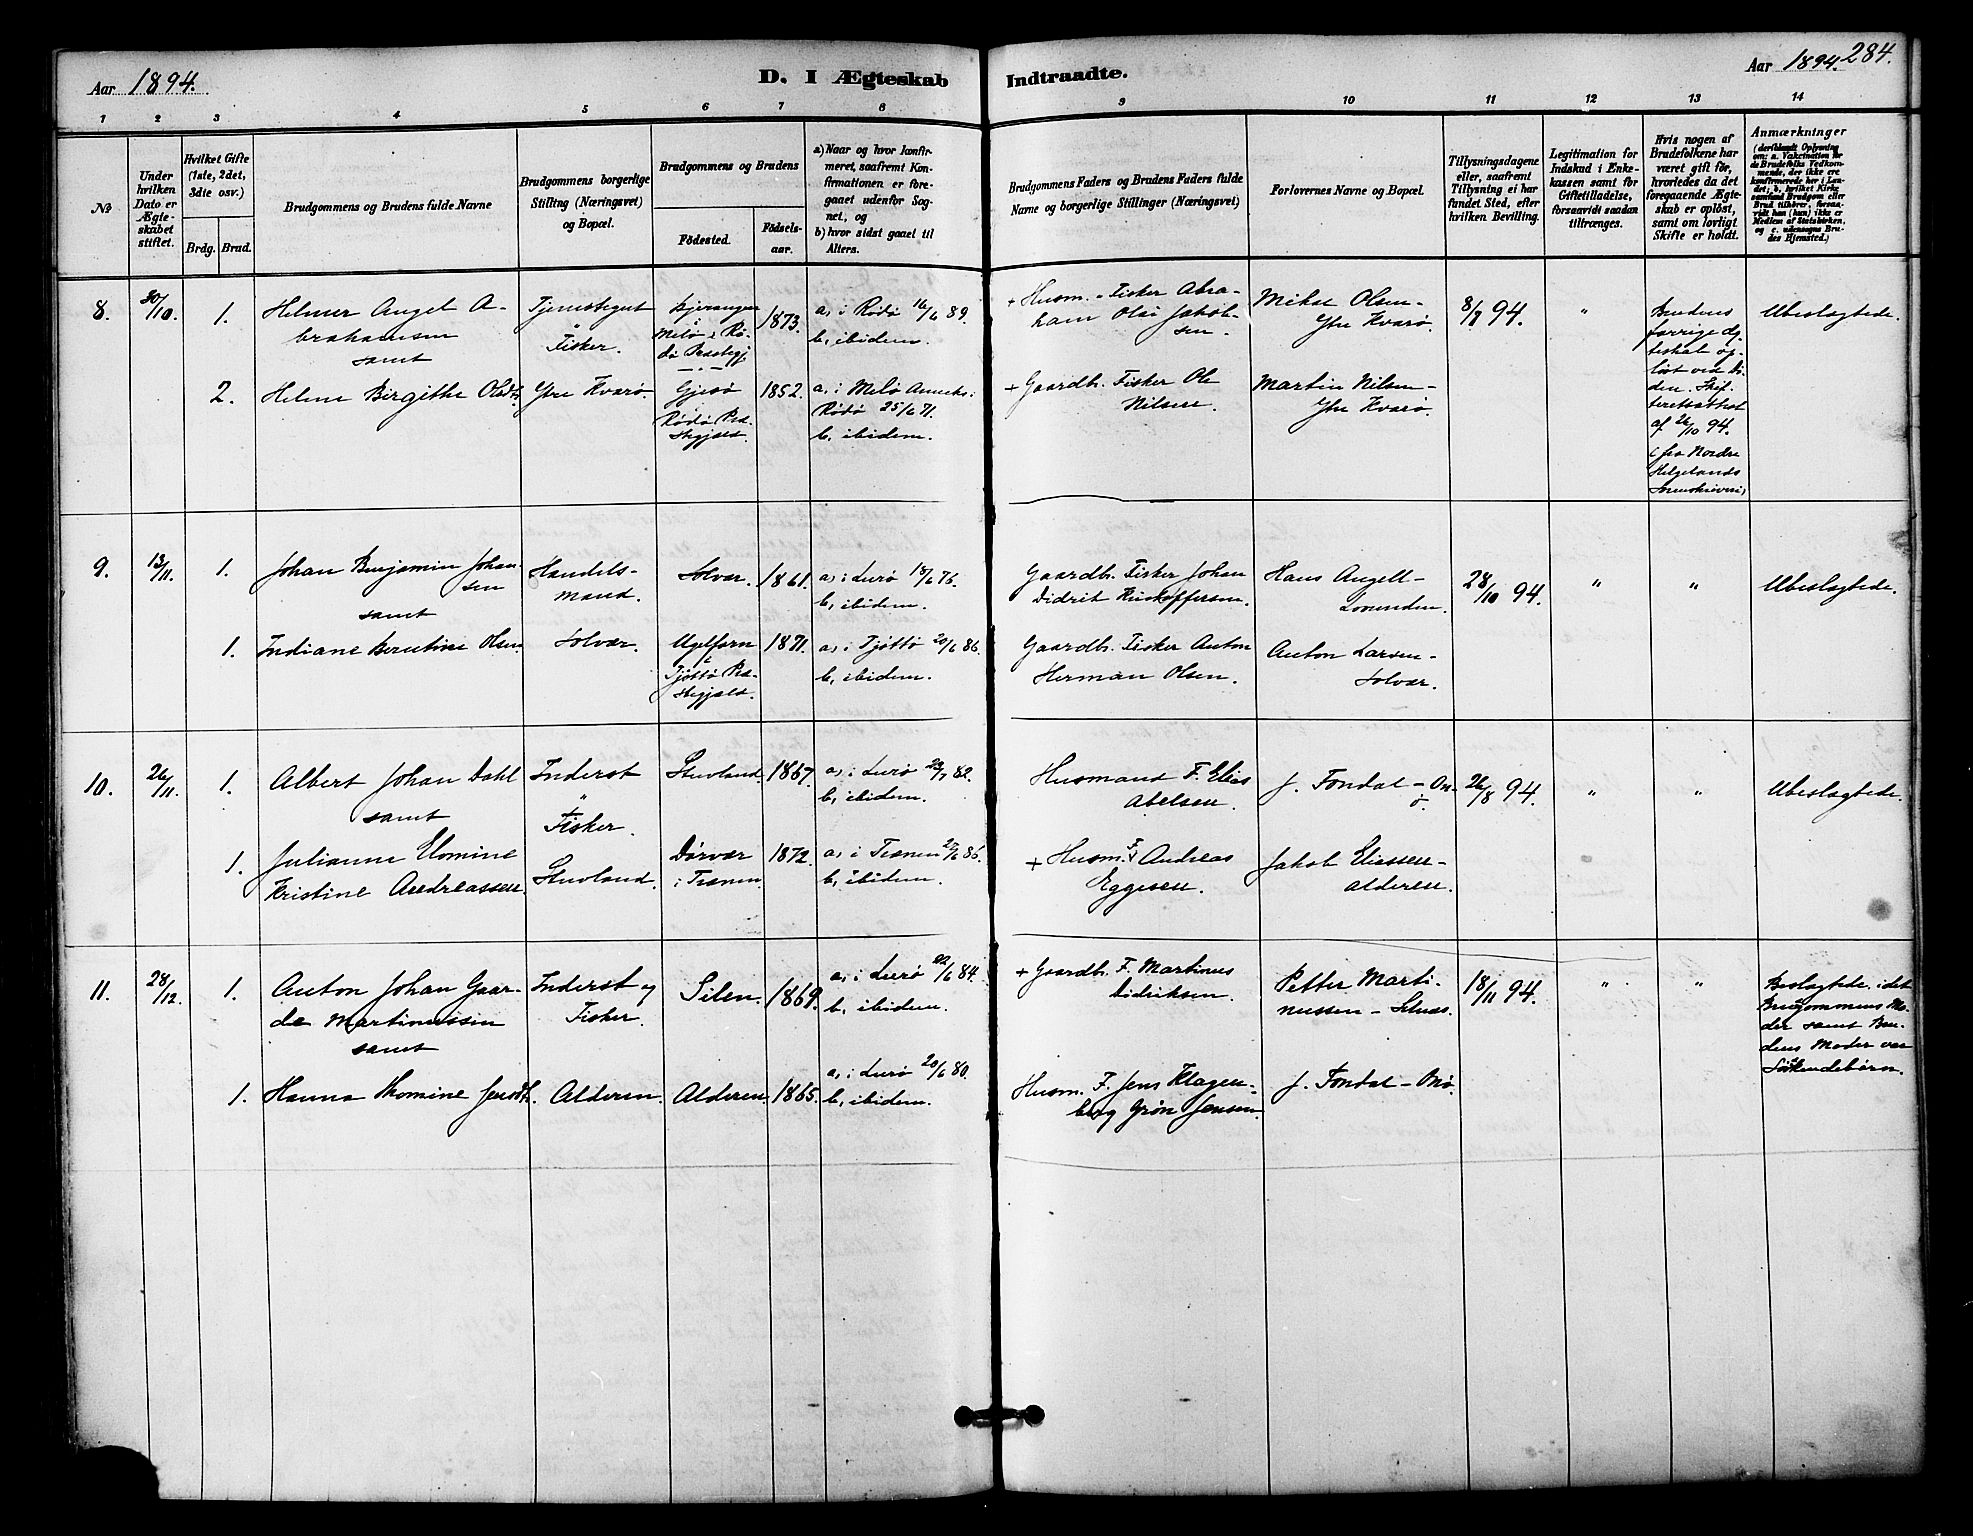 Aar 1894.
D. I Ægteskab
Indtraadte.
Aar 1894.
284.
1 2 3 4 5 6 7 8 9 10 11 12 13 14
№
Under
hvilken
Dato er
Ægte-
skabet
stiftet.
Hvilket Gifte
(1ste, 2det,
3die osv.)
Brdg. Brud.
Brudgommens og Brudens fulde Navne
Brudgommens borgerlige
Stilling (Næringsvei)
og Bopæl.
Brudgommens og Brudens
Födested.
Födsels-
aar.
a) Naar og hvor konfir-
meret, saafremt Kon-
firmationen er fore-
gaaet udenfor Sog-
net, og
b) hvor sidst gaael til
Alters.
Brudgommens Faders og Brudens Faders fulde
Navne og borgerlige Stillinger (Næringsvei)
Forlovernes Navne og Bopæl.
Tillysningsdagene
eller, saafremt
Tillysning ei har
fundet Sted, efter
hvilken Bevilling.
Legitimation for
Indskud i Enke-
kassen samt for
Giftetilladelse,
forsaavidt saadan
tiltrænges.
Hvis nogen af
Brudefolkene har
været gift för,
hvorledes da det
foregaaende Ægte-
skab er oplöst,
samt om lovligt
Skifte er holdt.
Anmærkninger
(deriblandt Oplysning
om: a. Vakcination for
de Brudefolks Vedkom-
mende, der ikke ere
konfirmerede her i Lan-
det; b. hvilket Kirke-
samfund Brudgom eller
Brud tilhörer, forsaa-
vidt han (hun) ikke er
Medlem af Statskirken,
og c. udensogns Bru-
des Hjemsted.)
8. 30/10. 1. Helmer Angel A-
brahamsen
samt
Tjenestegut
Fisker.
Melø i Rø-
dø Præstegj.
1873.
a, i Rødø 16/6 89.
b, ibidem.
+ Husm. Fisker Abra-
ham Olai Jakob-
sen
Mikal Olsen -
Ytre Kvarø.
8/7 94.
"
Brudens
forrige Æg-
teskab op-
løst ved Dø-
den. Skif-
teretsattest
af 26/10 94.
fra Nordre
Helgelands
Sorenskriveri,
Ubeslægtede.
2. Helene Birgithe Olsdtr.
Ytre Kvarø.
Gjesø
Rødø Præ-
stegjæld.
1852.
a, i Melø Anneks:
Rødø 25/6 71.
b, ibidem.
+ Gaardb. Fisker Ole
Nilsen.
Martin Nilsen -
Ytre Kvarø.
9. 13/11. 1. Johan Benjamin Johan-
sen
samt
Handels-
mand.
Solvær. 1861.
a, i Lurø 18/6 76.
b, ibidem.
Gaardb. Fisker Johan
Didrik Kristoffersen.
Hans Angell -
Lovunden.
28/10 94.
" "
Ubeslægtede.
1. Indiane Berntine Olsen.
Solvær.
Ugelfarn
i
Tjøttø Præ-
stegjæld.
1871.
a, i Tjøttø 20/6 86.
b, ibidem.
Gaardb. Fisker Anton
Herman Olsen.
Anton Larsen -
Solvær.
10. 26/11. 1. Albert Johan Dahl
samt
Inderst
"
Fisker.
Stuvland. 1867.
a, i Lurø 23/7 82.
b, ibidem.
Husmand F. Elias
Abelsen.
J. Fondal - On-
ø.
26/8 94.
" "
Ubeslægtede.
1. Julianne Elomine
Kristine Andreassen.
Stuvland.
Dørvær
i Trænen
1872.
a, i Trænen 27/6 86.
b, ibidem.
+ Husm. F. Andreas
Eggesen.
Jakob Eliassen -
Alderen.
11. 28/12. 1. Anton Johan Gaar-
de Martinussen
samt
Inderst og
Fisker.
Silen. 1869.
a, i Lurø 22/6 84.
b, ibidem.
+ Gaardb. F. Martinus
Didriksen.
Petter Marti-
nussen -
18/11 94.
" "
Beslægtede, idet
Brudgommens Mo-
der samt Bru-
dens Moder var
Søskendebørn.
1. Hanna Thomine Jensdtr.
Alderen.
Alderen.
1865.
a, i Lurø 20/6 80.
b, ibidem.
Husm. F. Jens Klagen-
berg Grøn Jensen.
J. Fondal - Onø.